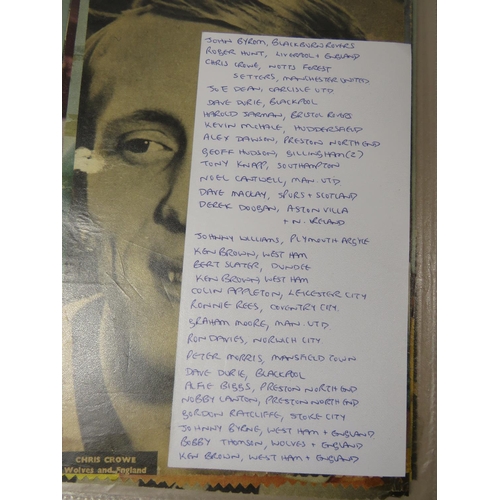 JOHN BYROM, BLACKBURN ROVERS
ROGER HUNT, LIVERPOOL + ENGLAND
CHRIS CROWE, NOTTS FOREST
SETTERS, MANCHESTER UNITED
JOE DEAN, CARLISLE UTD
DAVE DURIE, BLACKPOOL
HAROLD JARMAN, BRISTOL ROVERS
KEVIN MCHALE, HUDDERSFIELD
ALEX DAWSON, PRESTON NORTH END
GEOFF HUDSON, GILLINGHAM (2)
TONY KNAPP, SOUTHAMPTON
NOEL CANTWELL, MAN. UTD
DAVE MACKAY, SPURS + SCOTLAND
DEREK DOUGAN, ASTON VILLA
+ N. IRELAND
JOHNNY WILLIAMS, PLYMOUTH ARGYLE
KEN BROWN, WEST HAM
BERT SLATER, DUNDEE
KEN BROWN WEST HAM
COLIN APPLETON, LEICESTER CITY
RONNIE REES, COVENTRY CITY.
GRAHAM MOORE, MAN. UTD
RON DAVIES, NORWICH CITY
PETER MORRIS, MANSFIELD TOWN
DAVE DURIE, BLACKPOOL
ALFIE BIGGS, PRESTON NORTH END
NOBBY LAWTON, PRESTON NORTH END
GORDON RATCLIFFE, STOKE CITY
JOHNNY BYRNE, WEST HAM + ENGLAND
BOBBY THOMSON, WOLVES + ENGLAND
KEN BROWN, WEST HAM + ENGLAND
CHRIS CROWE
Wolves and England